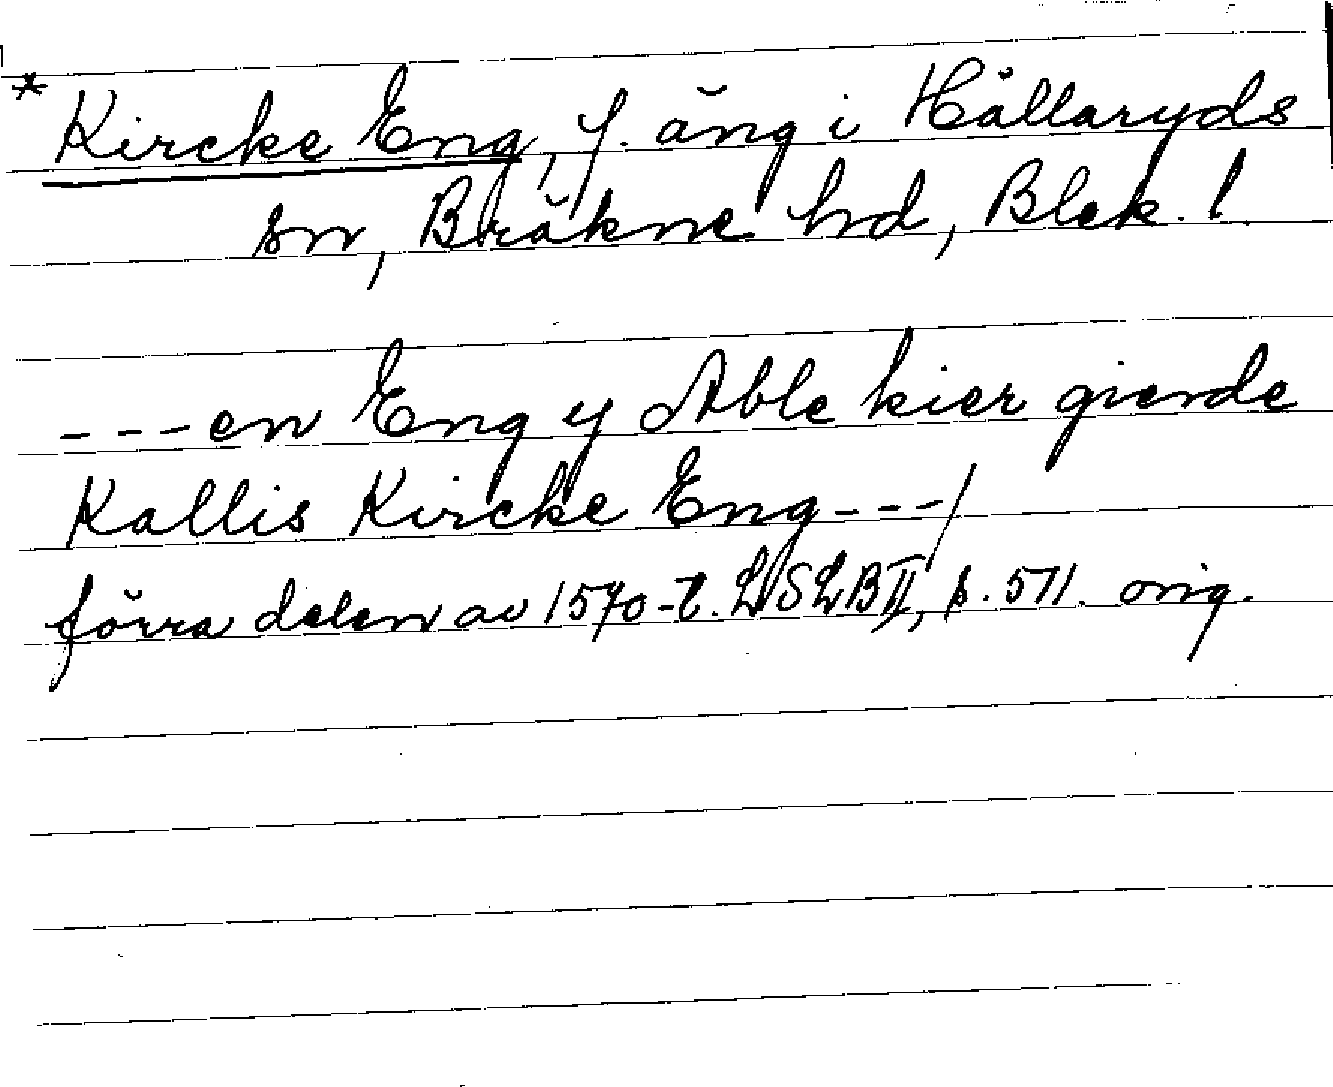 * Kircke Eng, f. äng i Hällaryds
sn, Bräkne hd, Blek. l.
---en Eng y Able kier gierde
Kallis Kircke Eng---/
förra delen av 1570-t. LSLB II, s. 571. orig.